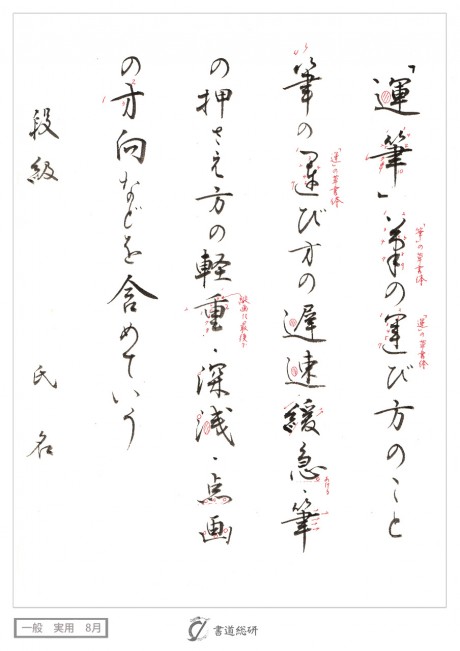 「運筆」筆の運び方のこと
「筆」の草書体
「運」の草書体
筆の運び方の遅速緩急、筆
「運」の草書体
あける
の押さえ方の軽重・深浅・点画
縦画は最後に
の方向などを含めていう
段級　氏名
一般　実用　8月
書道総研